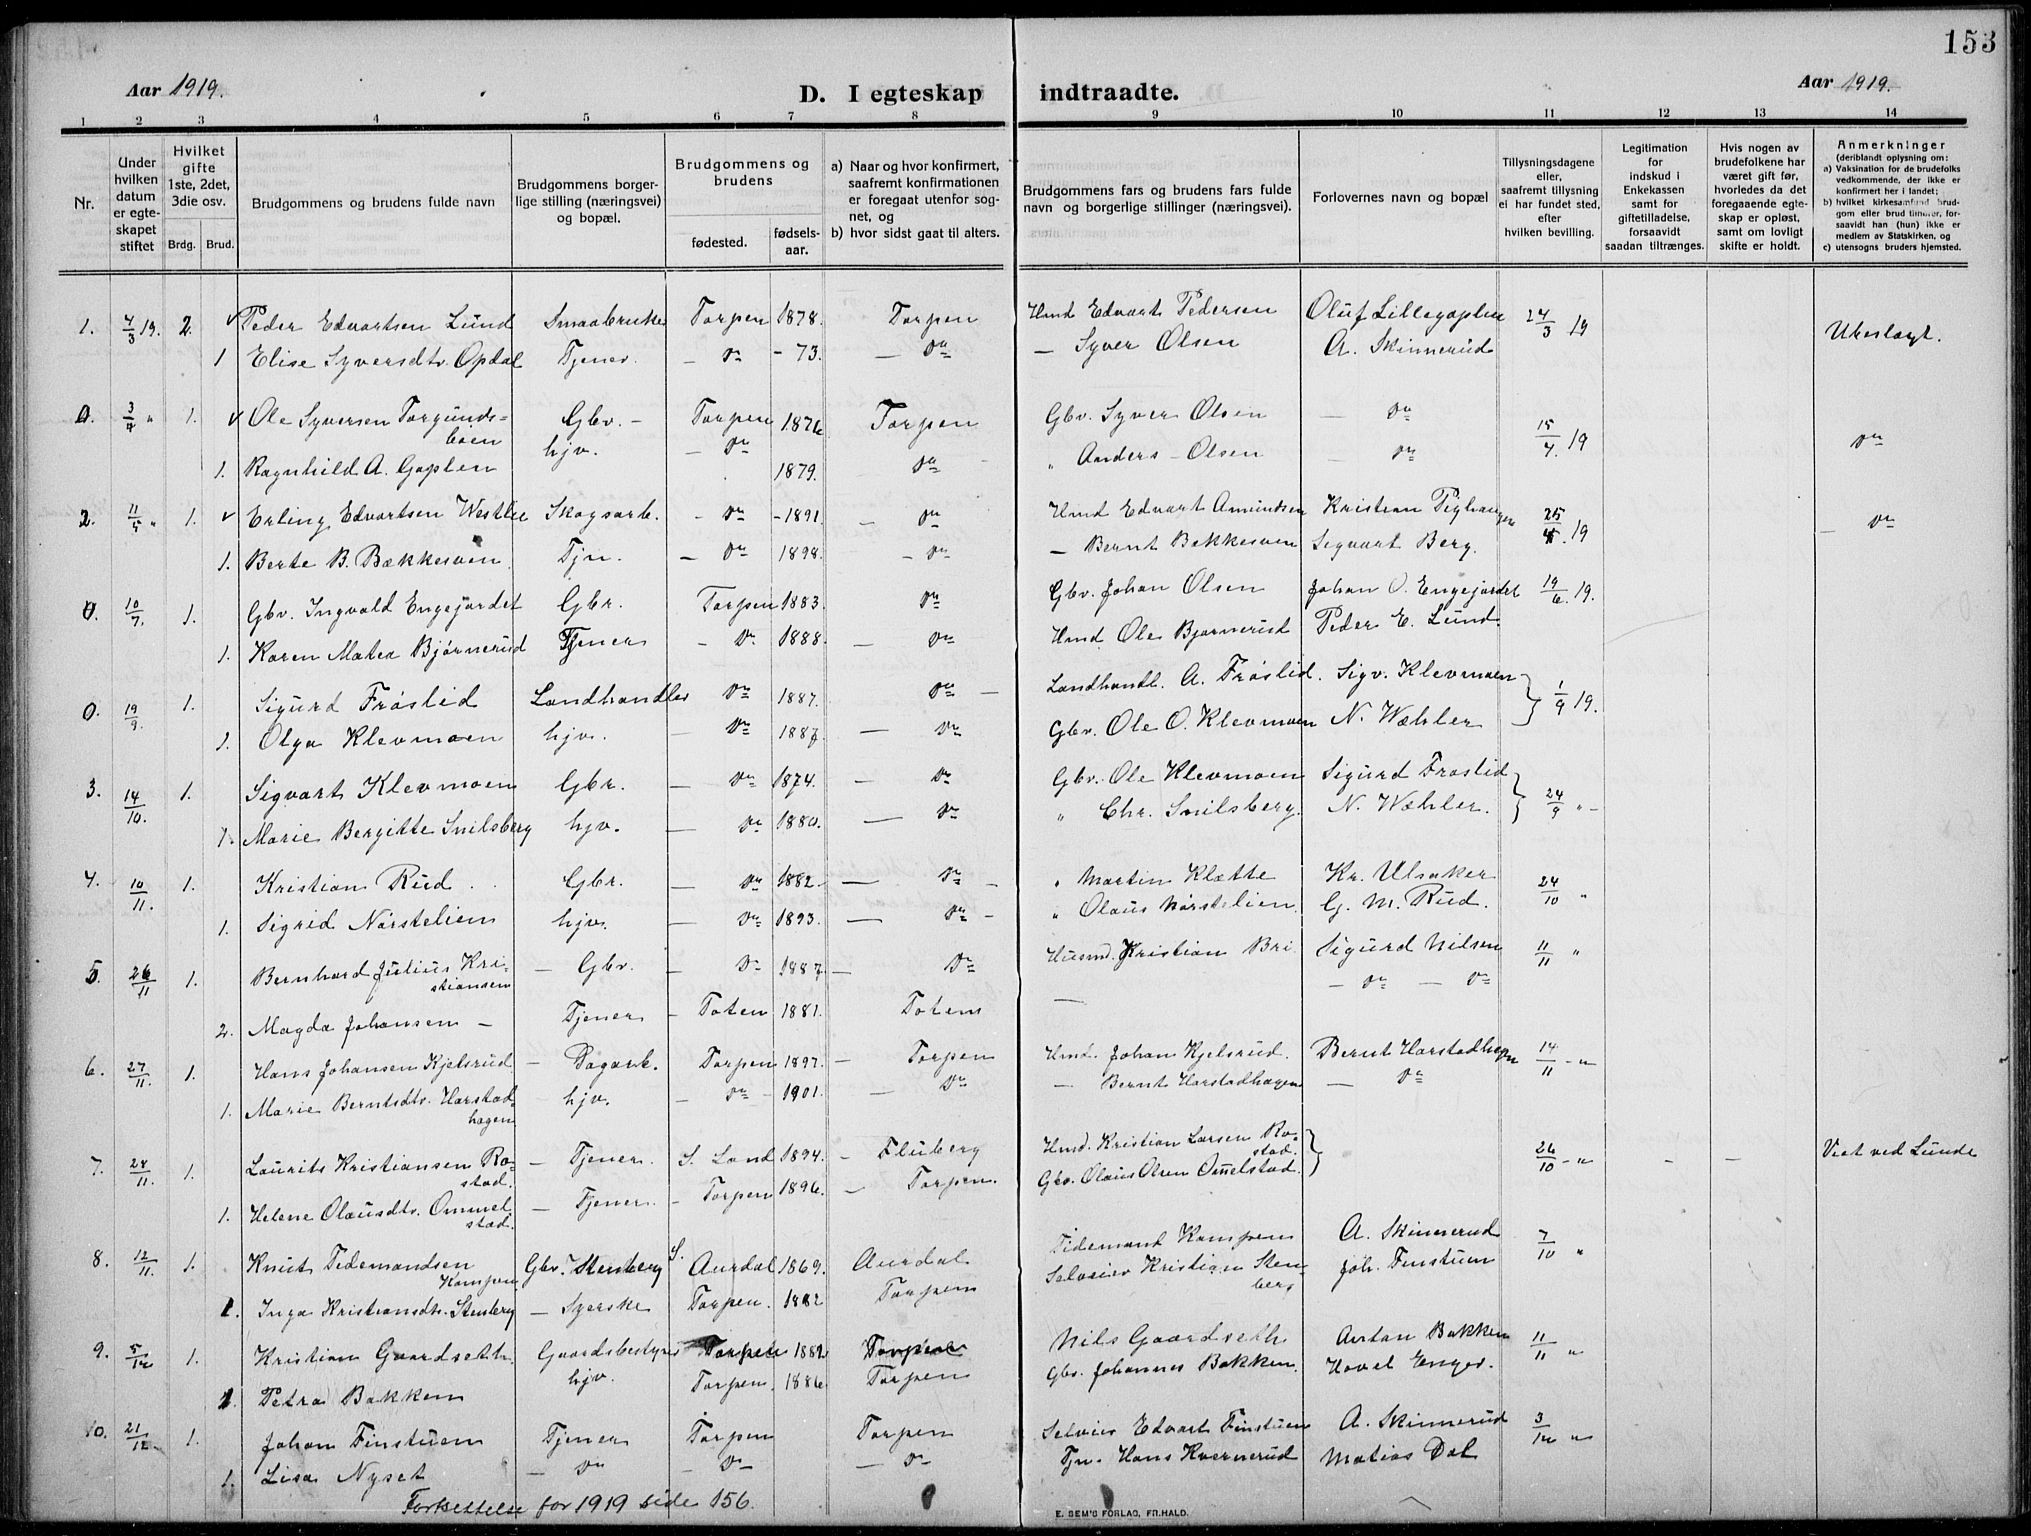 153
Aar 1919.
D. I egteskap indtraadte.
Aar 1919.
1 2 3 4 5 6 7 8 9 10 11 12 13 14
Nr.
Under hvilken datum er egteskapet stiftet
Hvilket gifte 1ste, 2det, 3die osv.
Brdg. Brud.
Brudgommens og brudens fulde navn
Brudgommens borgerlige stilling (næringsvei) og bopæl.
Brudgommens og brudens
fødested.
fødselsaar.
a) Naar og hvor konfirmert, saafremt konfirmationen er foregaat utenfor sognet, og
b) hvor sidst gaat til alters.
Brudgommens fars og brudens fars fulde navn og borgerlige stillinger (næringsvei).
Forlovernes navn og bopæl
Tillysningsdagene eller, saafremt tillysning ei har fundet sted, efter hvilken bevilling.
Legitimation for indskud i Enkekassen samt for giftetilladelse, forsaavidt saadan tiltrænges.
Hvis nogen av brudefolkene har været gift før, hvorledes da det foregaaende egteskap er opløst, samt om lovligt skifte er holdt.
Anmerkninger
(deriblandt oplysning om:
a) Vaksination for de brudefolks vedkommende, der ikke er konfirmert her i landet;
b) hvilket kirkesamfund brudgom eller brud tilhører, forsaavidt han (hun) ikke er medlem av Statskirken, og
c) utensogns bruders hjemsted.
1. 4/3 19. 2. Peder Edvartsen Lund Smaabruker Torpen 1878. Torpen Hmd Edvart Pedersen Oluf Lillegaplen 24/3 19 Ubeslagt.
1 Elise Syversdtr. Opdal Tjener. — do - 73. — do — Syver Olsen A. Skinnerud
0. 3/7 " 1. Ole Syversen Torgunds= Gbr. - Torpen 1876 Torpen Gbr. Syver Olsen — do 15/4. 19 do
boen hjv. — do
1. Ragnhild A. Gaplen 1879. do " Anders Olsen — do
2. 11/5 " 1. Erling Edvartsen Westlie Skogsarb. - do - 1891. — do Hmd Edvart Amundsen Kristian 25/4. 19 — do
1. Berte B. Bækkesven Tjn. — do 1898. - do — Bernt Bækkesven Sigvart Berg.
0. 10/7. 1. Gbr. Ingvald Engejordet Gbr. Torpen 1883. do Gbr. Johan Olsen Johan O. Engejordet 19/6. 19.
1. Karen Matea Bjørnerud Tjener - do 1888. — do Hmd Ole Bjørnerud Peder E. Lund
0. 19/9. 1. Sigurd Frøslid Landhandler do 1887. do — Landhandl. A. Frøslid. Sigv. Klevmoen 1/9 19.
1. Olga Klevmoen hjv. — do 1887. — do Gbr. Ole O. Klevmoen N. Wæhler
3. 14/10. 1. Sigvart Klevmoen Gbr. — do 1874. - do Gbr. Ole Klevmoen Sigurd Frøslid 24/9 " -
1. Marie Bergitte Snilsberg hjv. — do 1880. — do " Chr. Snilsberg. N. Wæhler.
4. 10/11. 1. Kristian Rud Gbr. — do 1882 — do " Martin Klætte Kr. Ulsaker 24/10 "
1. Sigrid Nørstelien hjv. — do 1893. — do " Olaus Nørstelien. G. M. Rud.
5. 26/11 1. Bernhard Julius Kri- — Gbr. - do 1887 — do Husmd. Kristian Bri Sigurd Nilsen 11/11 "
stiansen — do — do
2. Magda Johansen - Tjener - Toten 1881. Toten —
6. 27/11. 1. Hans Johansen Kjelsrud — Dagarb. Torpen 1897. — Torpen Hmd. Johan Kjelsrud. Bernt Harstadhagen 14/11 - "
1. Marie Berntsdtr. Harstad- hjv. — do - 1901. — do — Bernt Harstadhagen — do
hagen
7. 28/11. 1. Laurits Kristiansen Ro- — Tjener. S. Land 1894. - Fluberg Hmd. Kristian Larsen Ro- 26/10 - " - - Viet ved Lunde
stad. stad.
1. Helene Olausdtr. Ommel — Tjener. - Torpen 1896. — Torpen. Gbr. Olaus Olsen Omelstad.
stad.
8. 12/11. 1. Knut Tidemandsen Gbr. Stenberg S. Aurdal 1869. Aurdal Tidemand Kampen A. Skinnerud 7/10 "
Kampen
1. Inga Kristiansdtr. Stenberg — Syerske Torpen. 1882 Torpen Selveier Kristian Sten- Joh. Finstuen
berg
9. 5/12 1. Kristian Gaardseth Gaardsbestyrer Torpen 1882 Torpen Nils Gaardseth Anton Bakken 11/11 "
1. Petra Bakken hjv. Torpen. 1886 Torpen Gbr. Johannes Bakken. Hovel Enger.
10. 21/12. 1. Johan Finstuen Tjener Torpen Torpen Selveier Edvart Finstuen A. Skinnerud 3/12 "
1. Lisa Nyset — do — do — — do Tjn. Hans Kvernerud Matias Dal
Fortsettelse for 1919 side 156.
E. SEM'S FORLAG, FR.HALD.